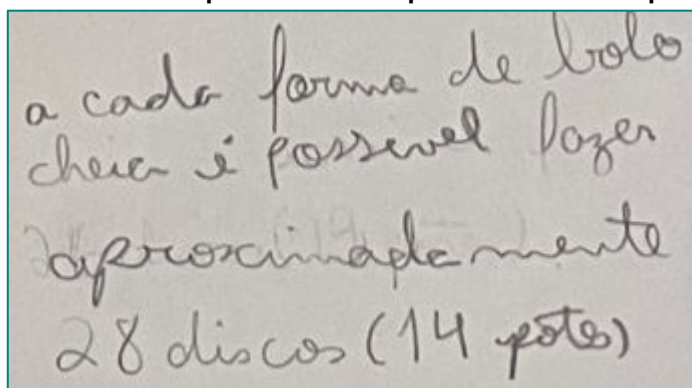 a cada forma de bolo
cheia é possivel fazer
aproximadamente
28 discos (14 potes)